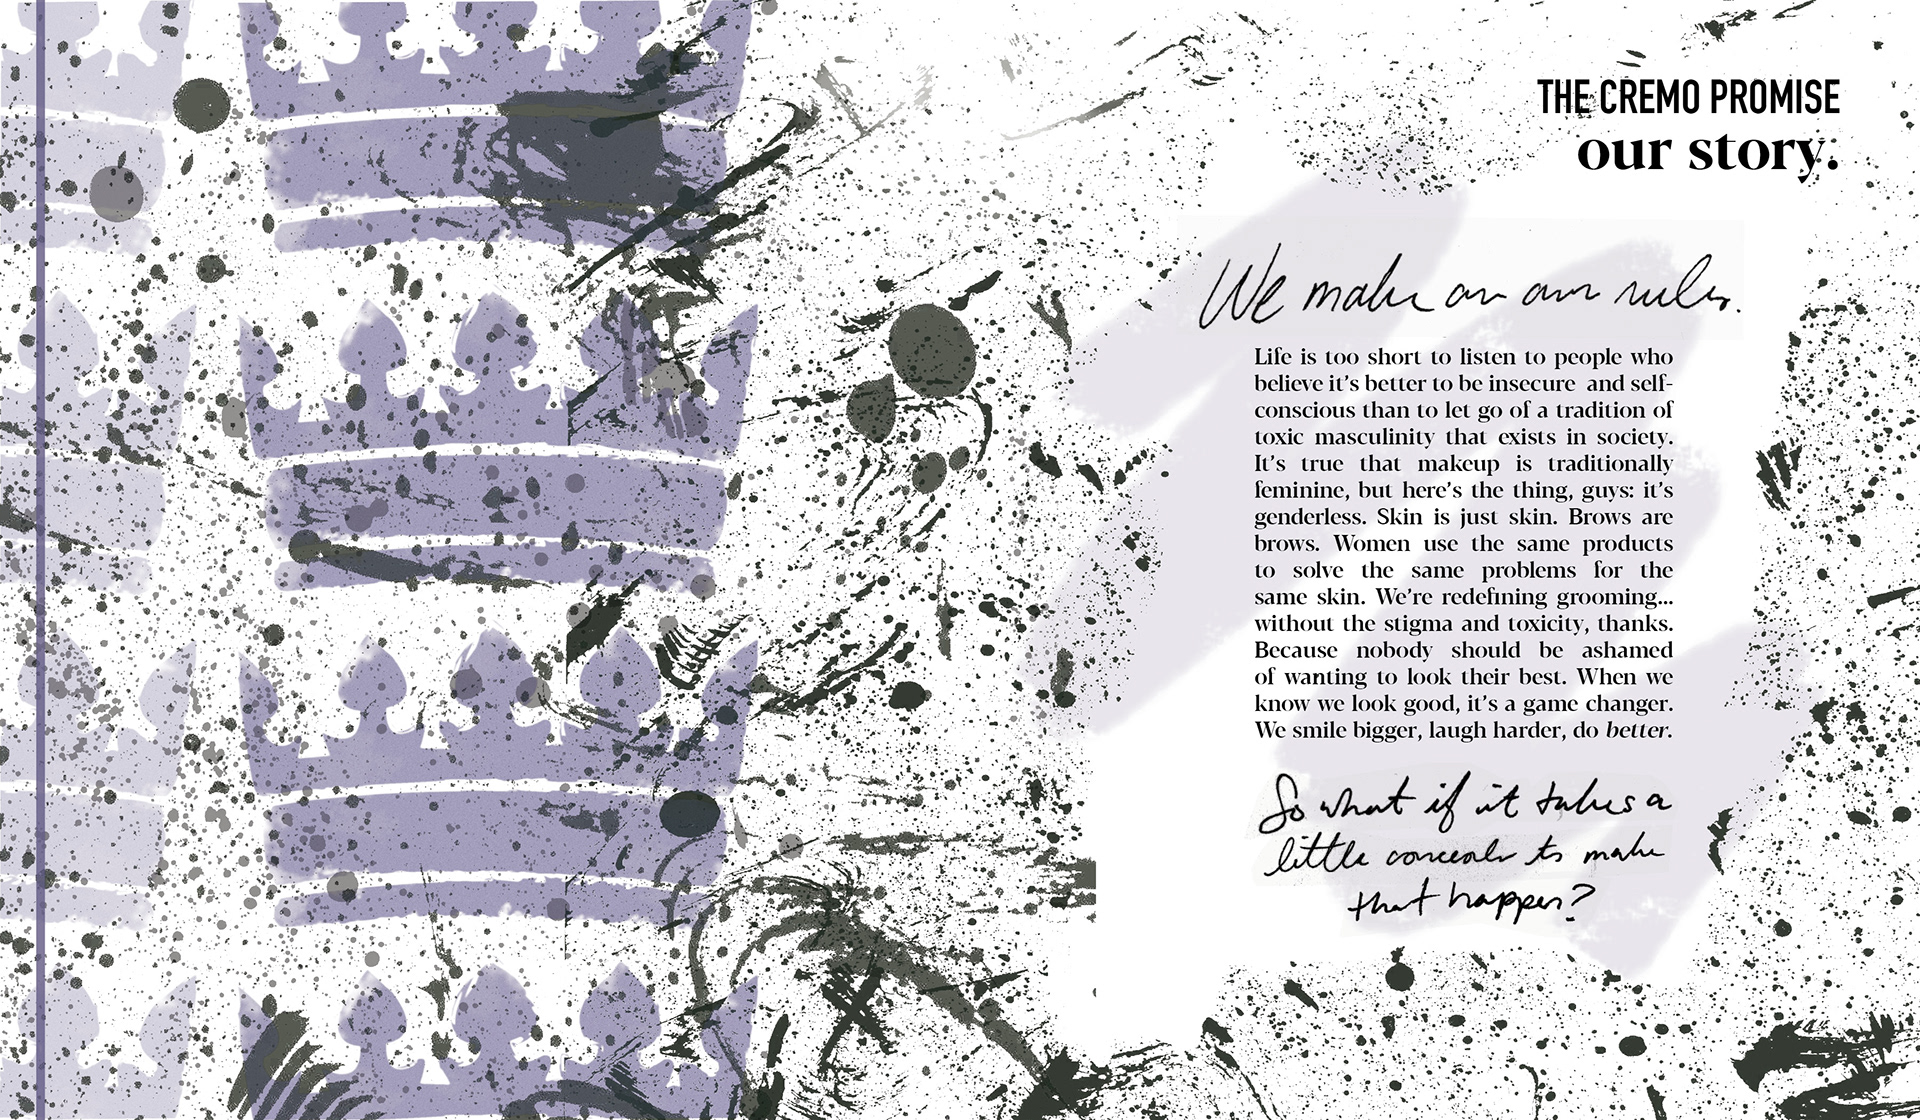 THE CREMO PROMISE
our story.
We make our own rules.
Life is too short to listen to people who
believe it's better to be insecure and self-
conscious than to let go of a tradition of
toxic masculinity that exists in society.
It's true that makeup is traditionally
feminine, but here's the thing, guys: it's
genderless. Skin is just skin. Brows are
brows. Women use the same products
to solve the same problems for the
same skin. We're redefining grooming...
without the stigma and toxicity, thanks.
Because nobody should be ashamed
of wanting to look their best. When we
know we look good, it's a game changer.
We smile bigger, laugh harder, do better.
So what if it takes a
little concealer to make
that happen?